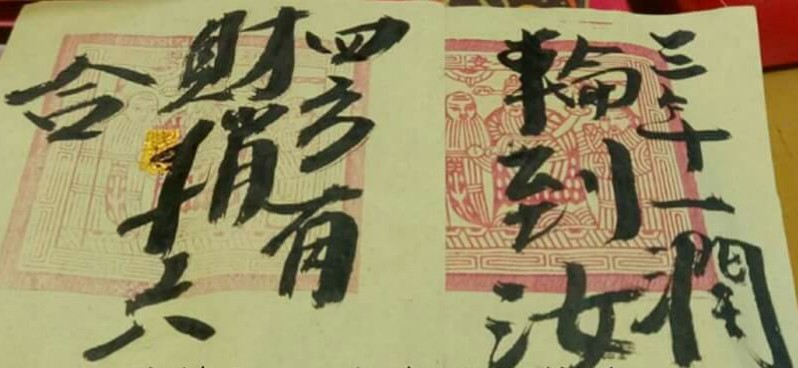 三年一潤
輪到汝
四方有
財捎十六
合